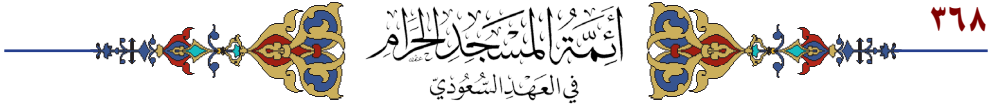 ٣٦٨
أَئِمَّةُ المَسْجِدِ الحَرَامِ
في العَهْدِ السُّعُودِيّ